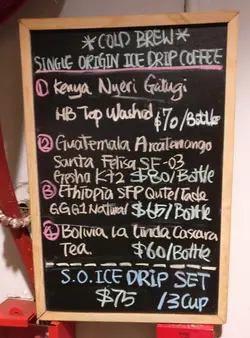 *COLD BREW*
SINGLE ORIGIN ICE DRIP COFFEE
① Kenya Nyeri Gatugi
HB Top Washed $70/Bottle
② Guatemala
Santa Felisa SF-03
Gesha K72 $80/Bottle
③ Ethiopia SFP
G.G1 Natural $65/Bottle
④ Bolivia La Linda Cascara
Tea. $60/Bottle
S.O. ICE DRIP SET
$75 /3 Cup